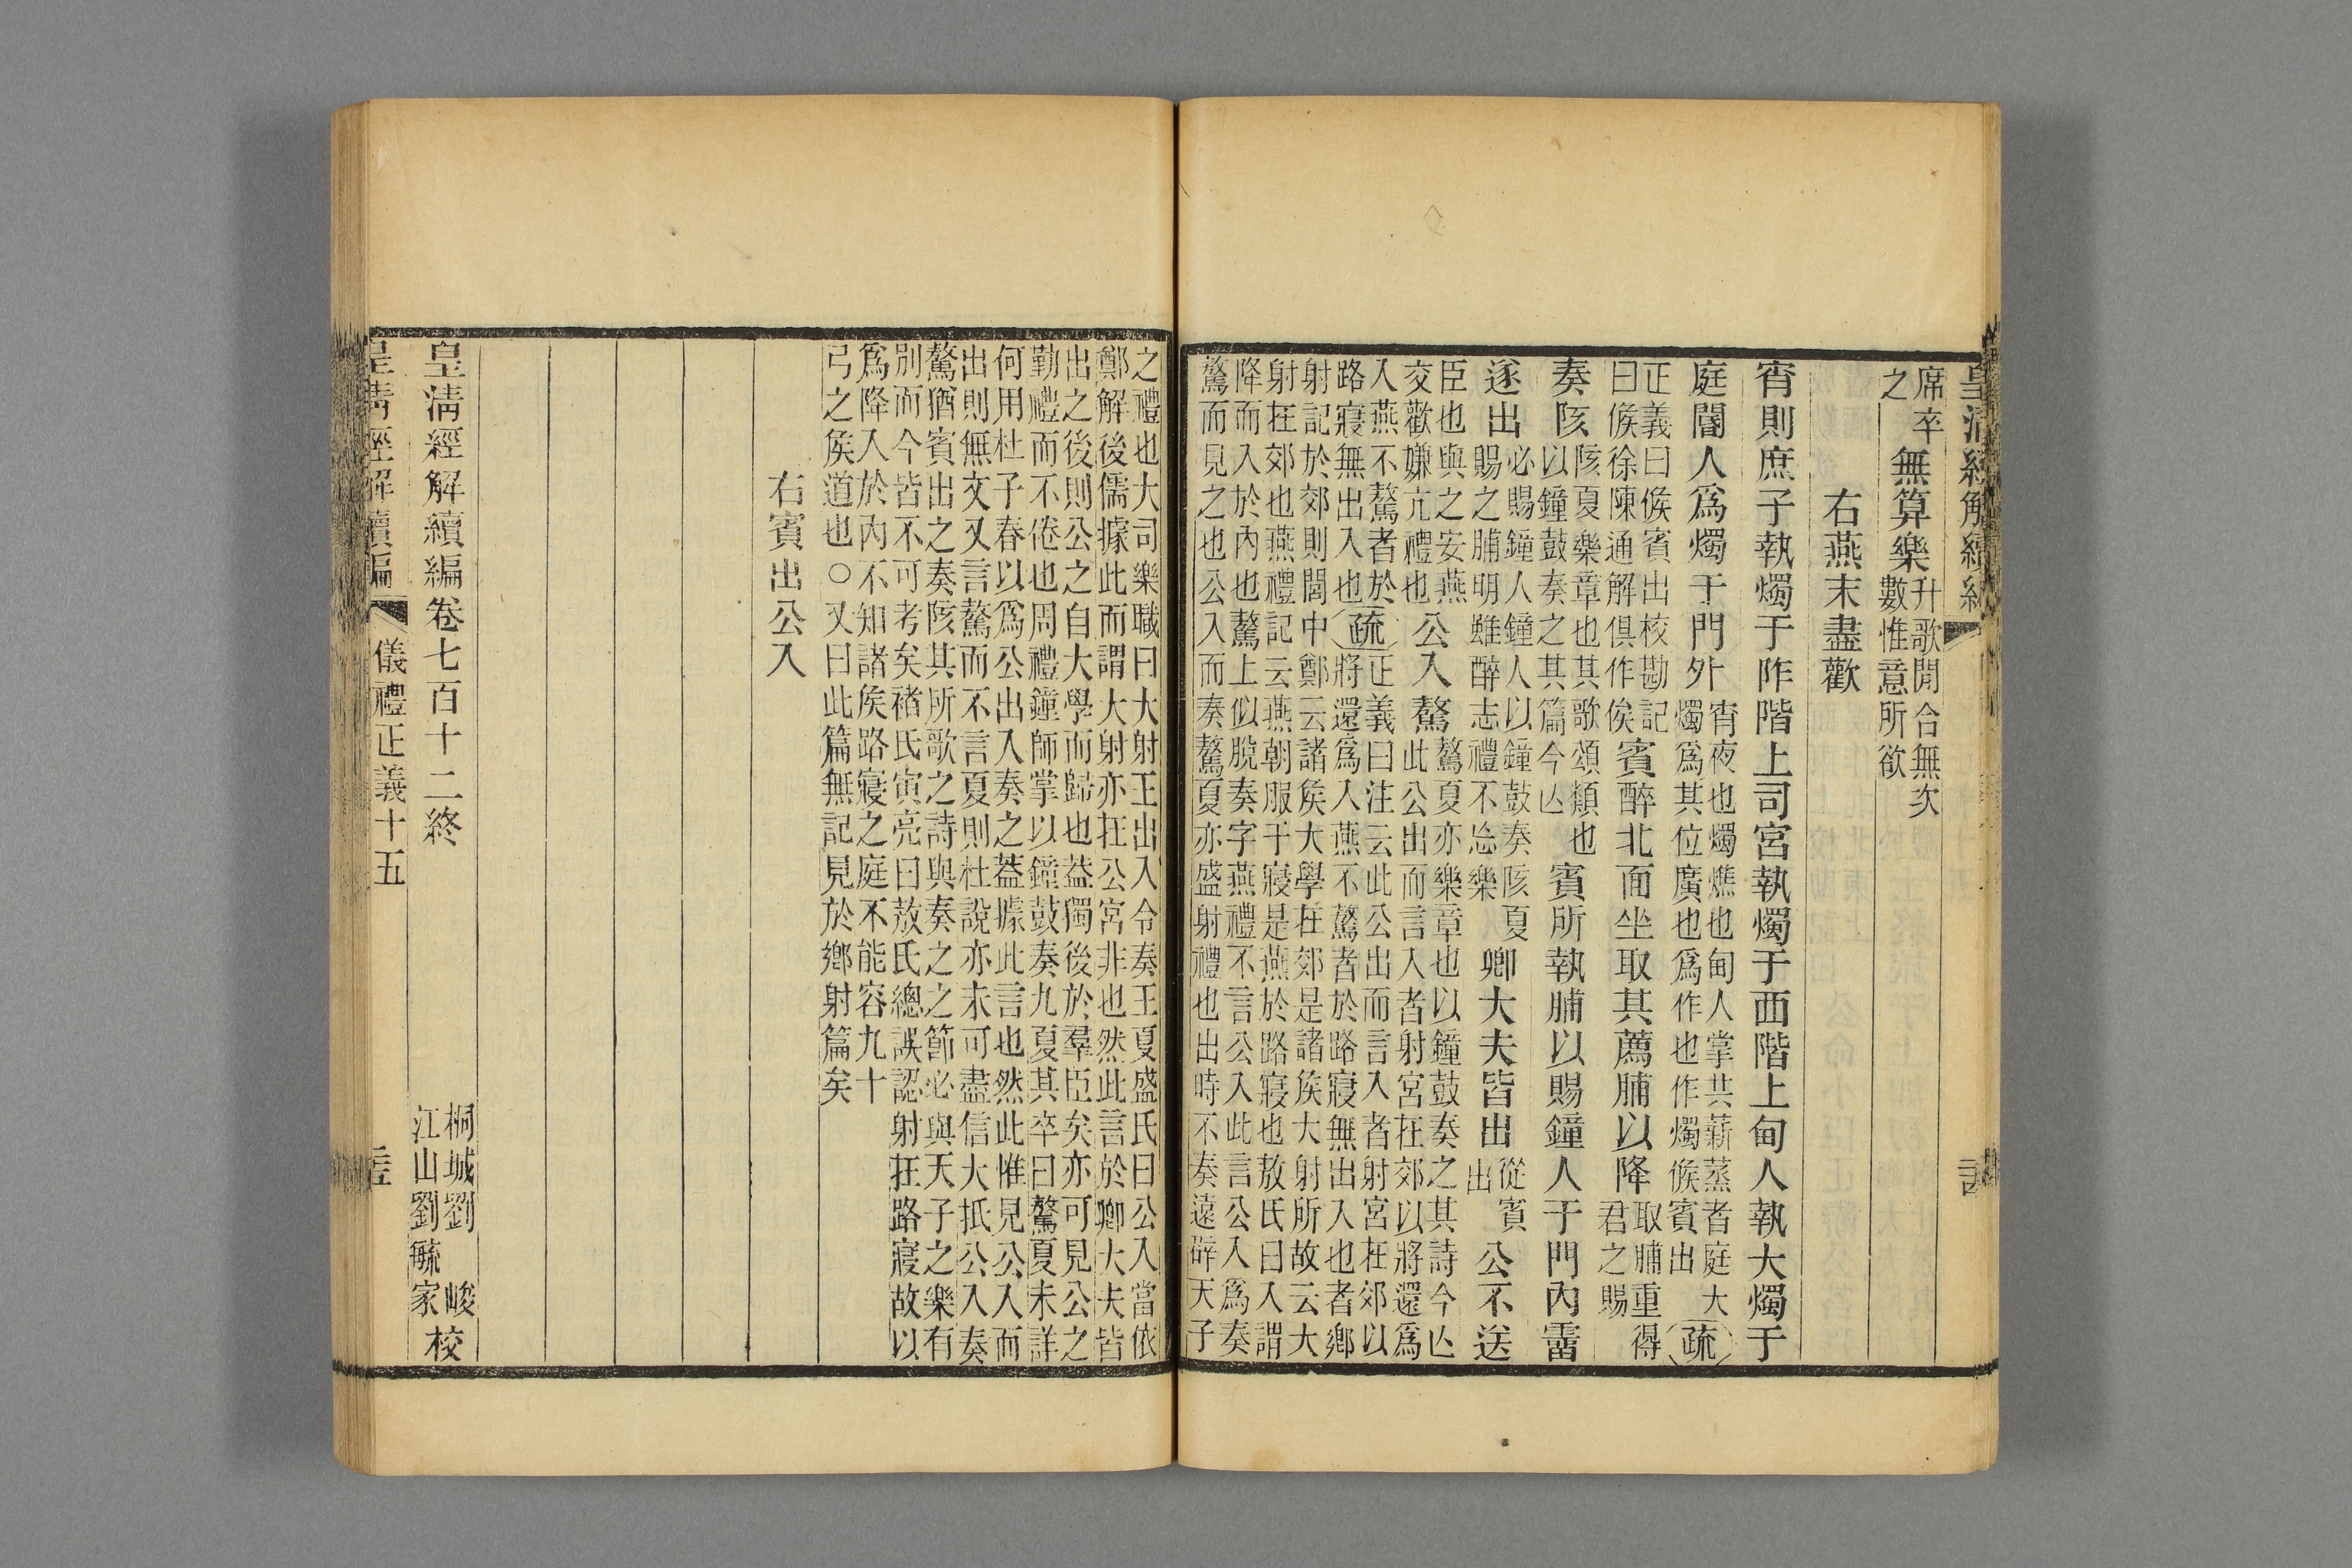 皇清經解續編
席卒
之
無算樂
升歌閒合無次
數惟意所欲
右燕末盡歡
宵則庶子執燭于阼階上司宮執燭于西階上甸人執大燭于
庭閽人爲燭于門外
宵夜也燭燋也甸人掌共薪蒸者庭大
燭爲其位廣也爲作也作燭候賓出
疏
正義曰候賓出校勘記
曰候徐陳通解俱作俟
賓醉北面坐取其薦脯以降
取脯重得
君之賜
奏陔
陔夏樂章也其歌頌類也
以鐘鼓奏之其篇今亾
賓所執脯以賜鐘人于門內霤
遂出
必賜鐘人鐘人以鐘鼓奏陔夏
賜之脯明雖醉志禮不忘樂
卿大夫皆出
從賓
出
公不送
臣也與之安燕
交歡嫌亢禮也
公入驁
驁夏亦樂章也以鐘鼓奏之其詩今亾
此公出而言入者射宮在郊以將還爲
入燕不驁者於
路寢無出入也
疏
正義曰注云此公出而言入者射宮在郊以
將還爲入燕不驁者於路寢無出入也者鄉
射記於郊則閭中鄭云諸侯大學在郊是諸侯大射所故云大
射在郊也燕禮記云燕朝服于寢是燕於路寢也敖氏曰入謂
降而入於內也驁上似脫奏字燕禮不言公入此言公入爲奏
驁而見之也公入而奏驁夏亦盛射禮也出時不奏遠辟天子
之禮也大司樂職曰大射王出入令奏王夏盛氏曰公入當依
鄭解後儒據此而謂大射亦在公宮非也然此言於卿大夫皆
出之後則公之自大學而歸也葢獨後於羣臣矣亦可見公之
勤禮而不倦也周禮鐘師掌以鐘鼓奏九夏其卒曰驁夏未詳
何用杜子春以爲公出入奏之葢據此言也然此惟見公入而
出則無文又言驁而不言夏則杜說亦未可盡信大抵公入奏
驁猶賓出之奏陔其所歌之詩與奏之之節必與天子之樂有
別而今皆不可考矣褚氏寅亮曰敖氏總誤認射在路寢故以
爲降入於內不知諸侯路寢之庭不能容九十
弓之侯道也○又曰此篇無記見於鄉射篇矣
右賓出公入
皇清經解續編卷七百十二終
桐城劉 峻
江山劉毓家
校
皇清經解續編 儀禮正義十五